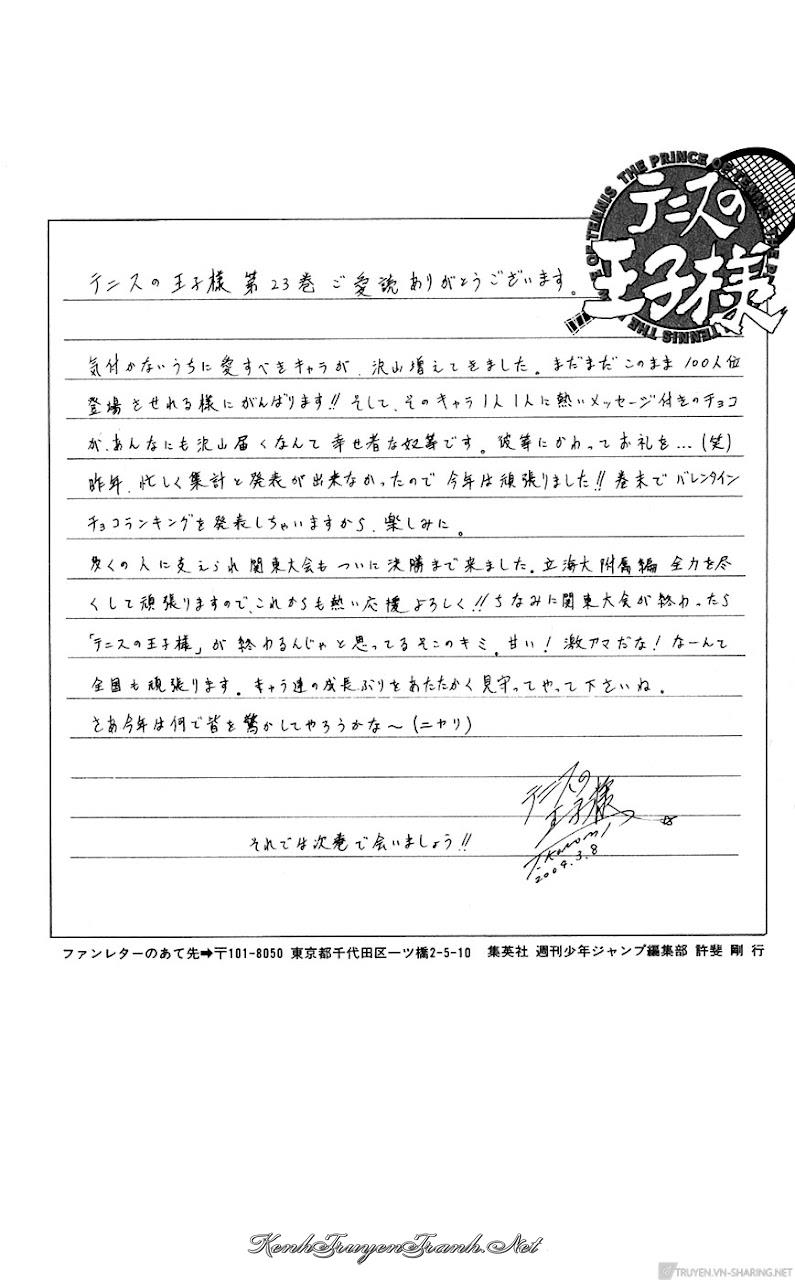 THE PRINCE OF TENNIS
テニスの
王子様
テニスの王子様 第23巻 ご愛読ありがとうございます。
気付かないうちに愛すべきキャラが、沢山増えてきました。まだまだこのまま100人位
登場させれる様にがんばります!! そして、そのキャラ1人1人に熱いメッセージ付きのチョコ
が、あんなにも沢山届くなんて幸せ者な奴等です。彼等にかわってお礼を…(笑)
昨年、忙しく集計と発表が出来なかったので今年は頑張りました!! 巻末でバレンタイン
チョコランキングを発表しちゃいますから、楽しみに。
多くの人に支えられ関東大会もついに決勝まで来ました。立海大附属編 全力を尽
くして頑張りますので、これからも熱い応援よろしく!! ちなみに関東大会が終わったら
「テニスの王子様」が終わるんじゃと思ってるそこのキミ。甘い! 激アマだな! なーんて
全国も頑張ります。キャラ達の成長ぶりをあたたかく見守ってやって下さいね。
さあ今年は何で皆を驚かしてやろうかな〜(ニヤリ)
テニスの
王子様
T.Konomi
2004.3.8
それでは次巻で会いましょう!!
ファンレターのあて先➡〒101-8050 東京都千代田区一ツ橋2-5-10 集英社 週刊少年ジャンプ編集部 許斐 剛 行
KenhTruyenTranh.Net
TRUYEN.VN-SHARING.NET